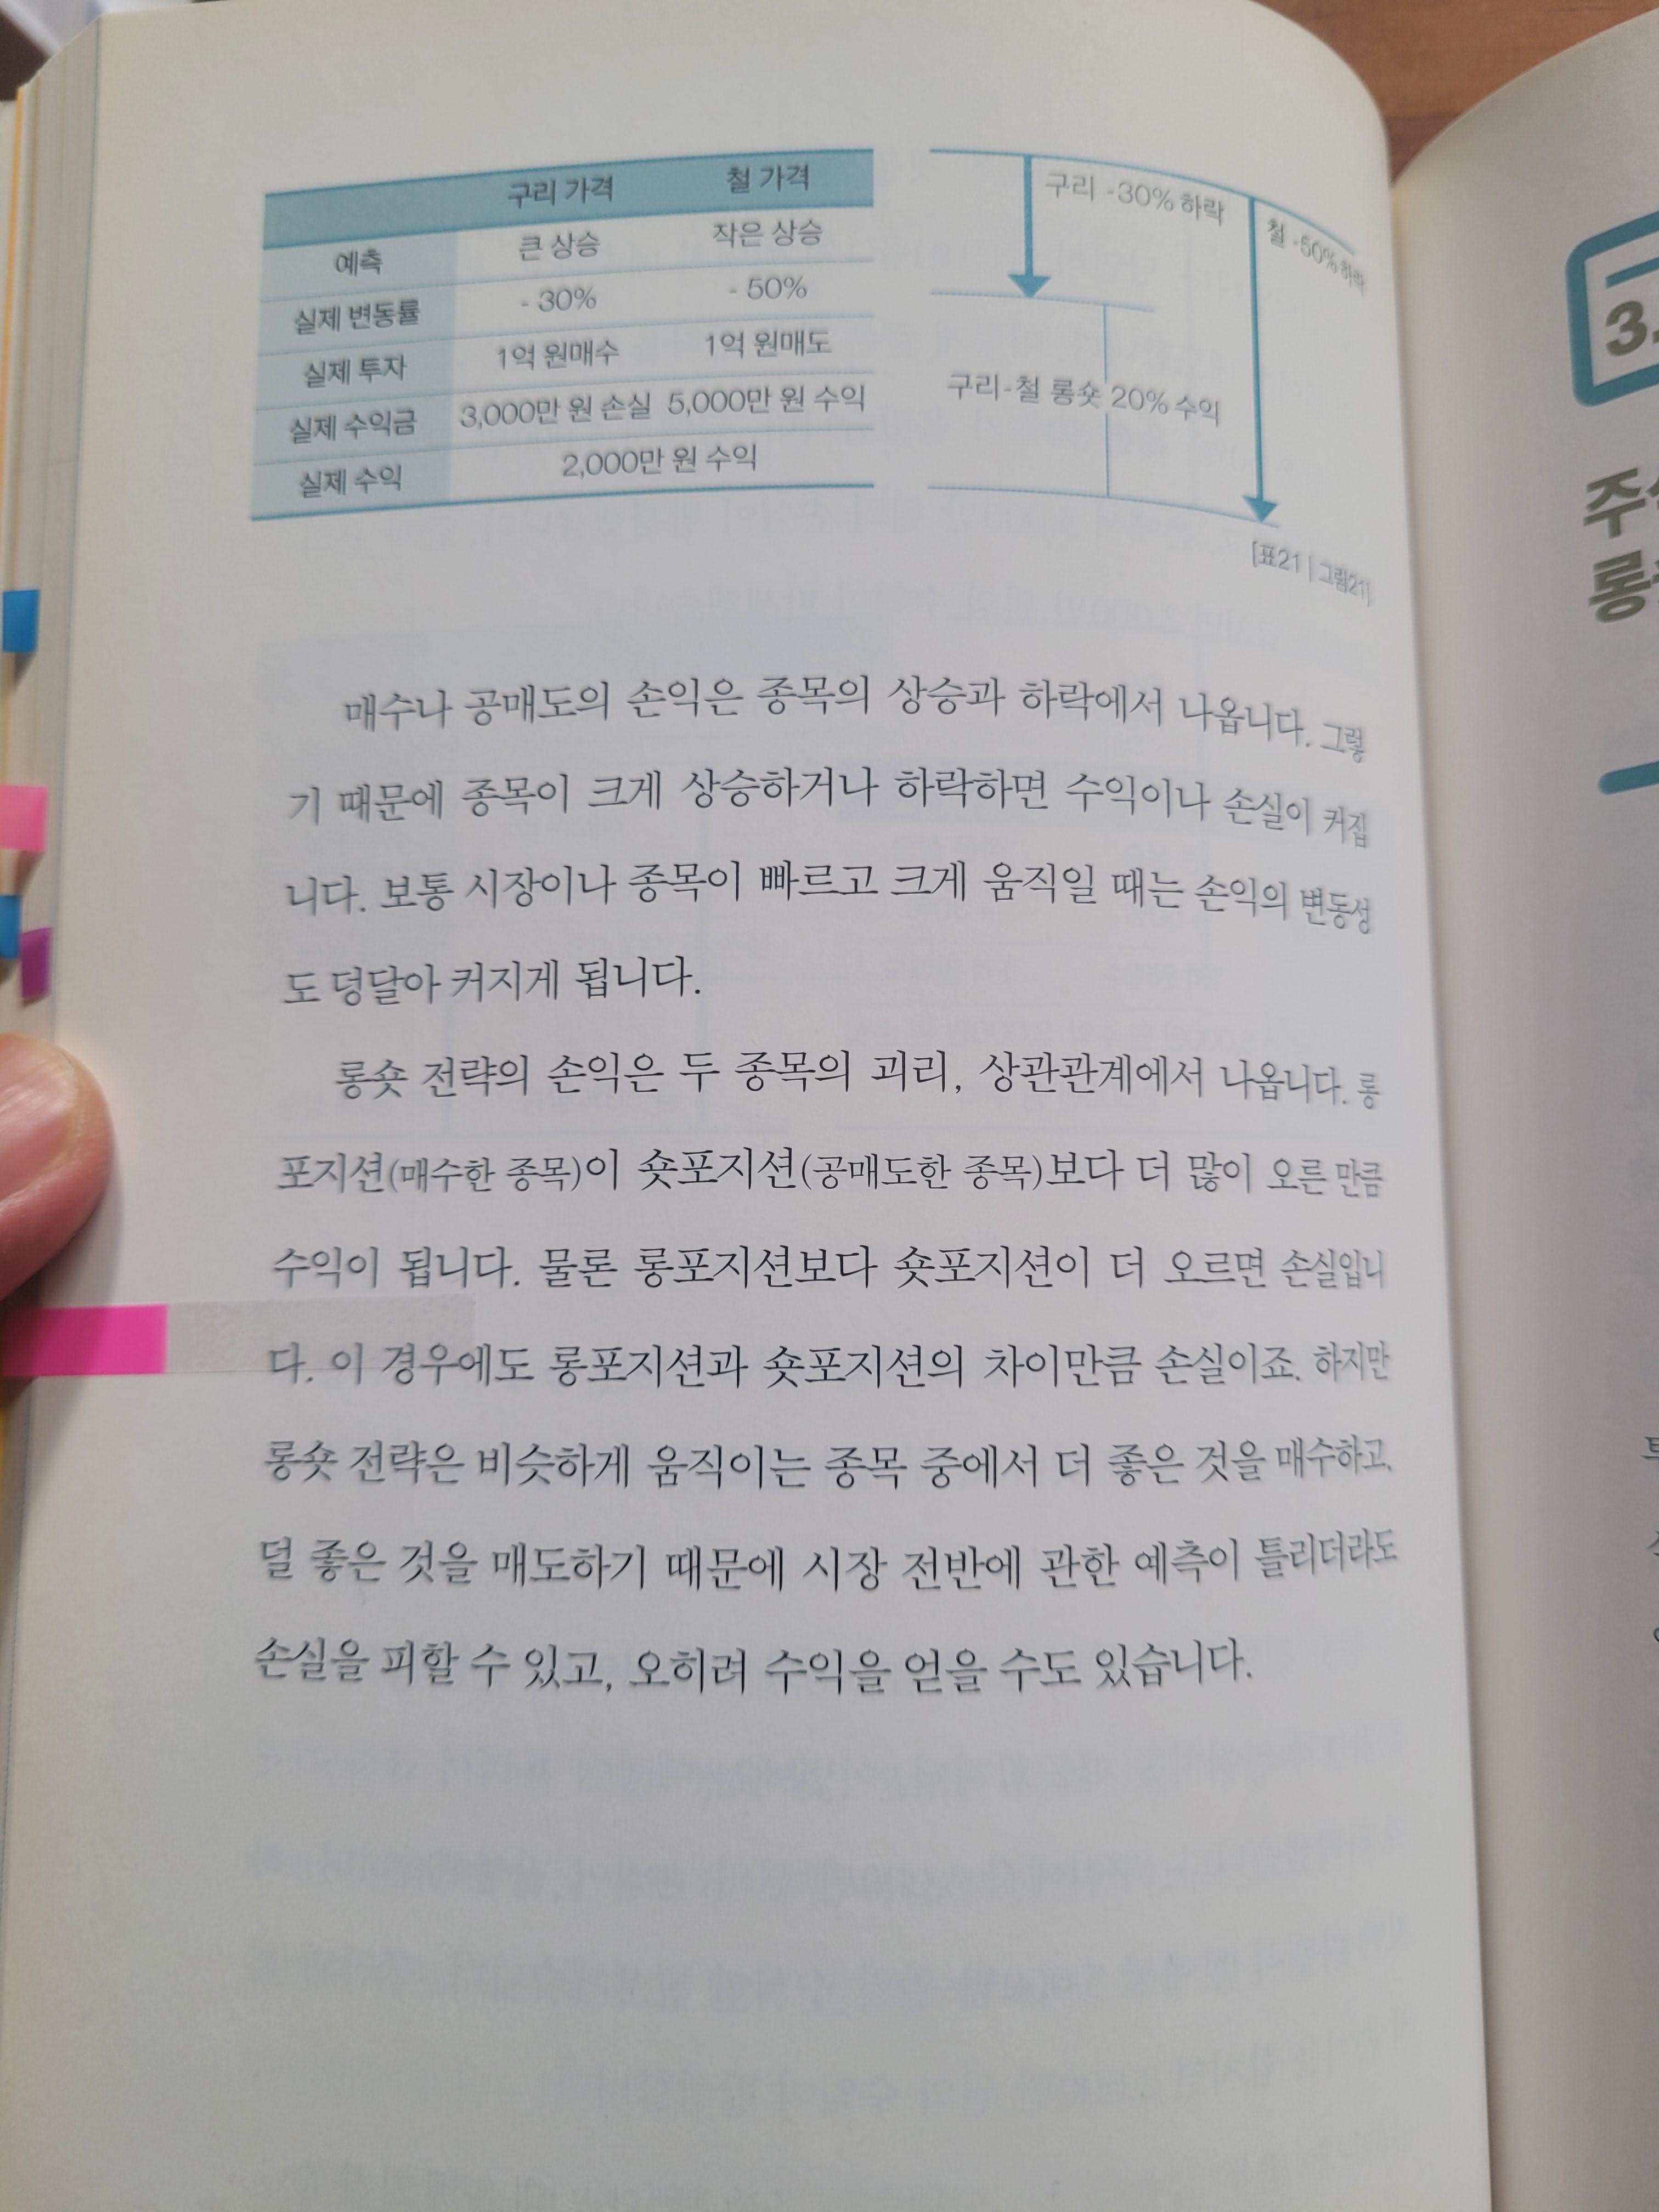 구리 가격 철 가격
예측 큰 상승 작은 상승
실제 변동률 - 30% - 50%
실제 투자 1억 원매수 1억 원매도
실제 수익금 3,000만 원 손실 5,000만 원 수익
실제 수익 2,000만 원 수익
구리 -30% 하락
철 -50% 하락
구리-철 롱숏 20% 수익
[표21 | 그림21]
매수나 공매도의 손익은 종목의 상승과 하락에서 나옵니다. 그렇
기 때문에 종목이 크게 상승하거나 하락하면 수익이나 손실이 커집
니다. 보통 시장이나 종목이 빠르고 크게 움직일 때는 손익의 변동성
도 덩달아 커지게 됩니다.
롱숏 전략의 손익은 두 종목의 괴리, 상관관계에서 나옵니다. 롱
포지션(매수한 종목)이 숏포지션(공매도한 종목)보다 더 많이 오른 만큼
수익이 됩니다. 물론 롱포지션보다 숏포지션이 더 오르면 손실입니
다. 이 경우에도 롱포지션과 숏포지션의 차이만큼 손실이죠. 하지만
롱숏 전략은 비슷하게 움직이는 종목 중에서 더 좋은 것을 매수하고,
덜 좋은 것을 매도하기 때문에 시장 전반에 관한 예측이 틀리더라도
손실을 피할 수 있고, 오히려 수익을 얻을 수도 있습니다.
3.